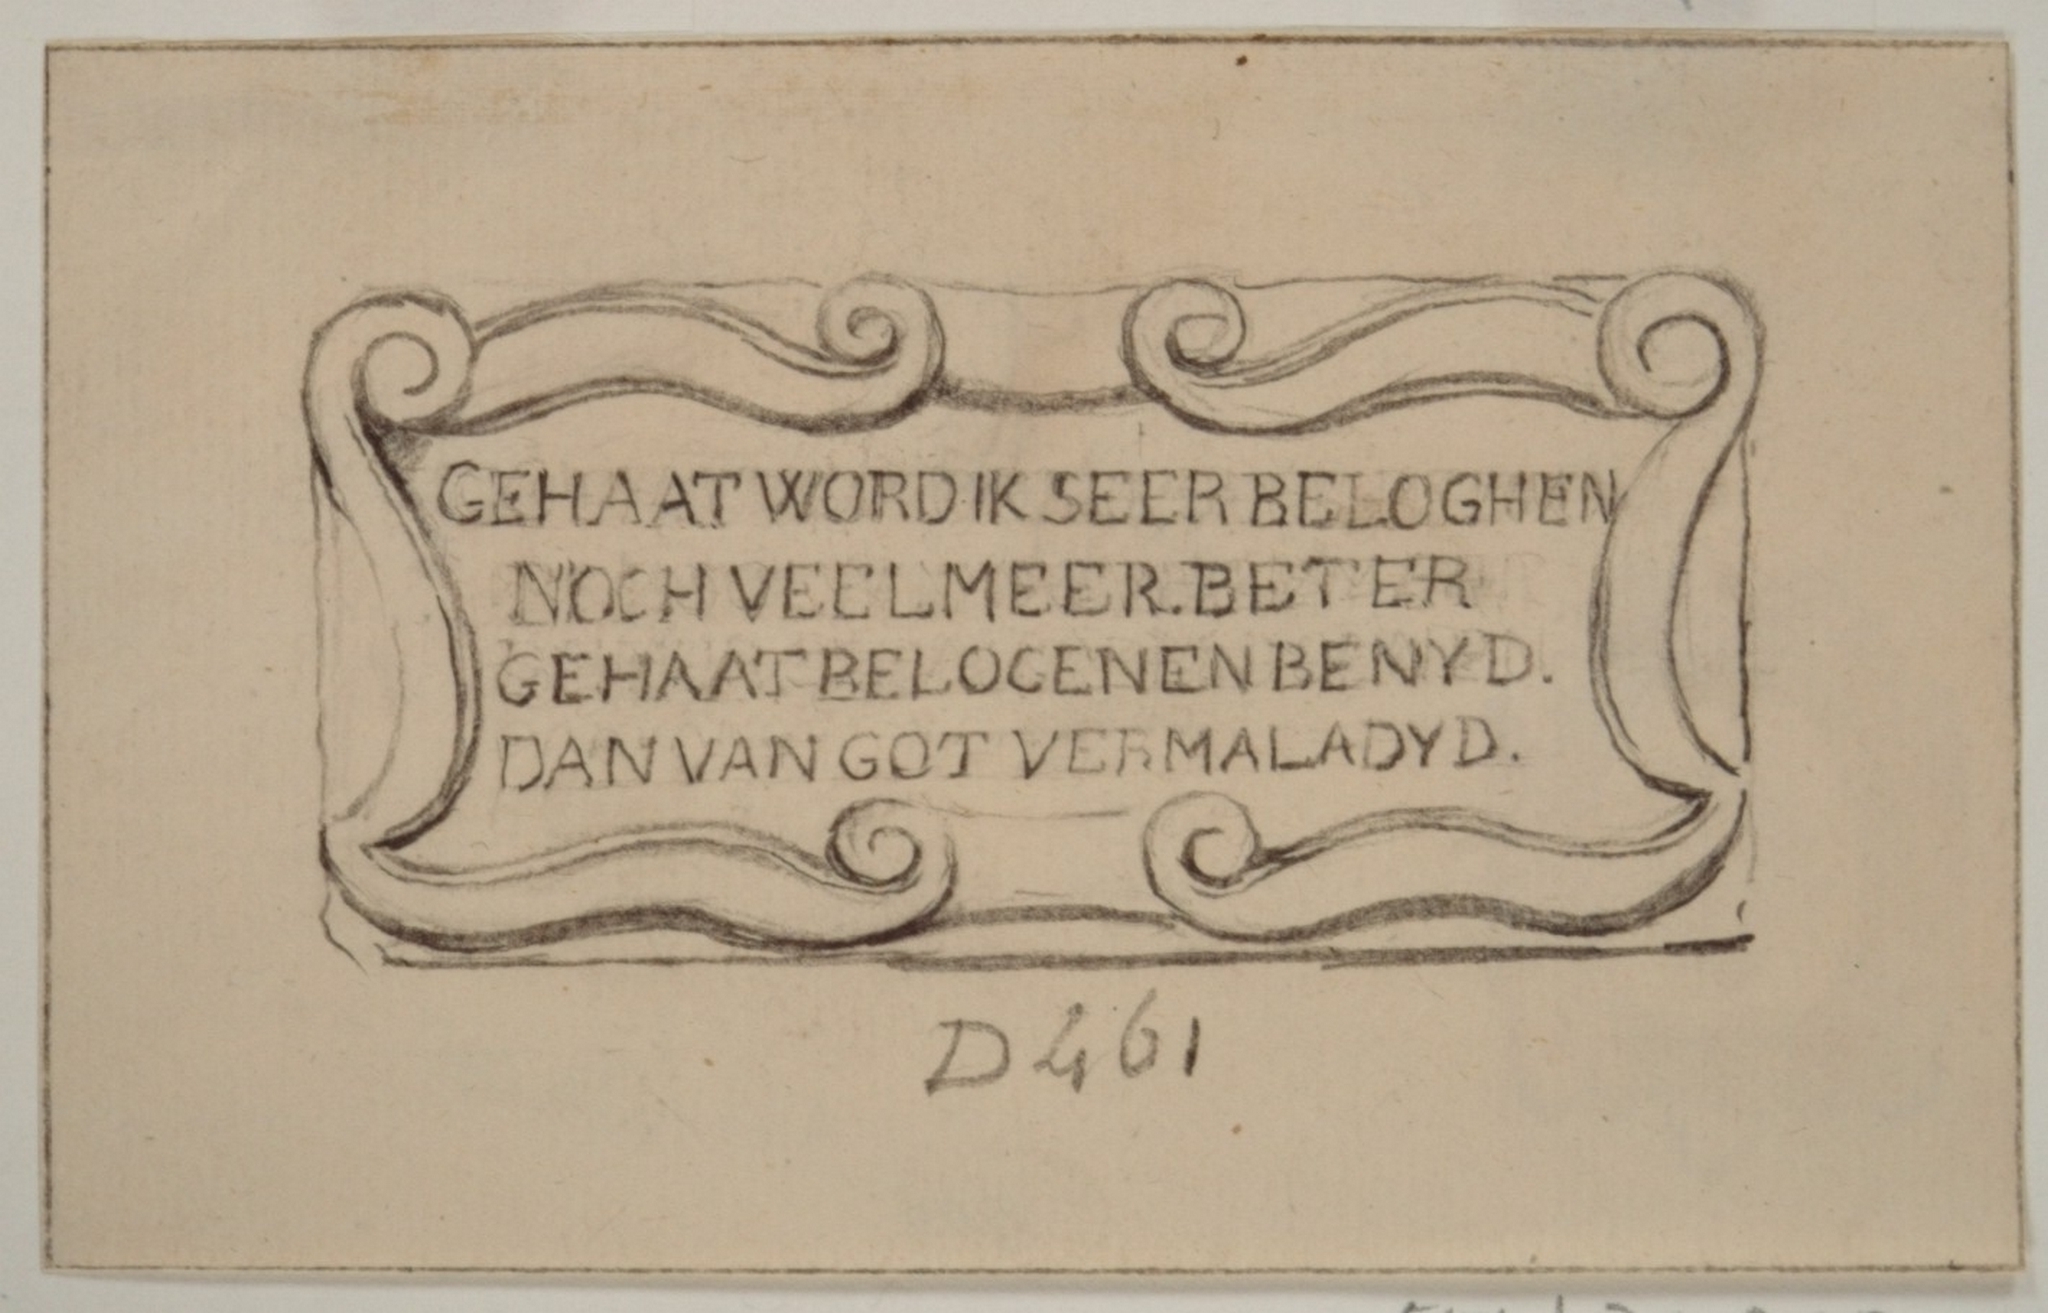 GEHAAT WORD IK SEER BELOGHEN
NOCH VEEL MEER. BETER
GEHAAT BELOGENEN BENYD.
DAN VAN GOT VERMALADYD.
D461